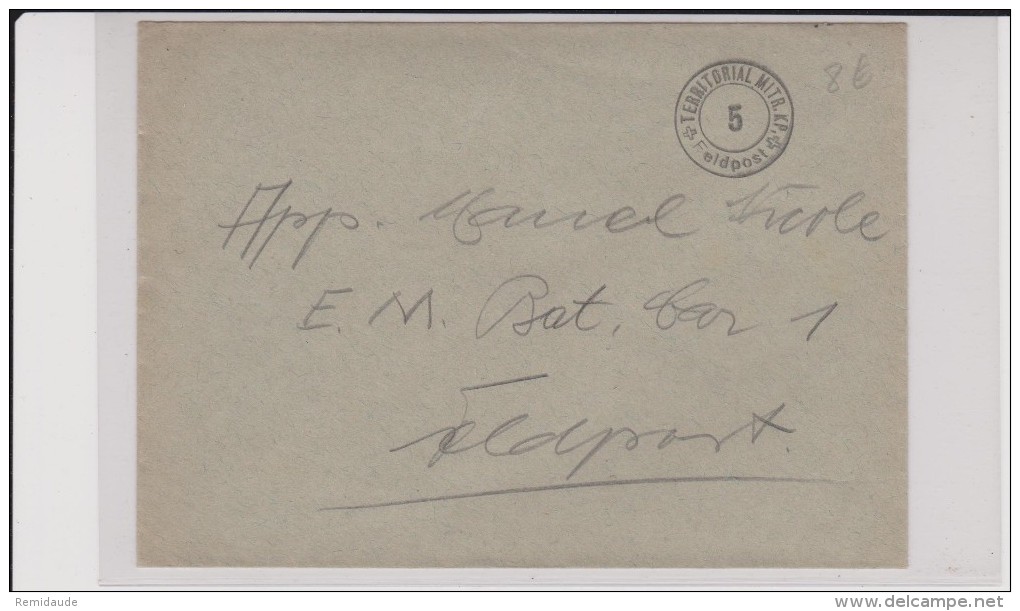 TERRITORIAL MITR. KP.
5
Feldpost
8 €
App. Marcel Nicole
E. M. Bat. Car 1
Feldpost.
Remidaude
www.delcampe.net